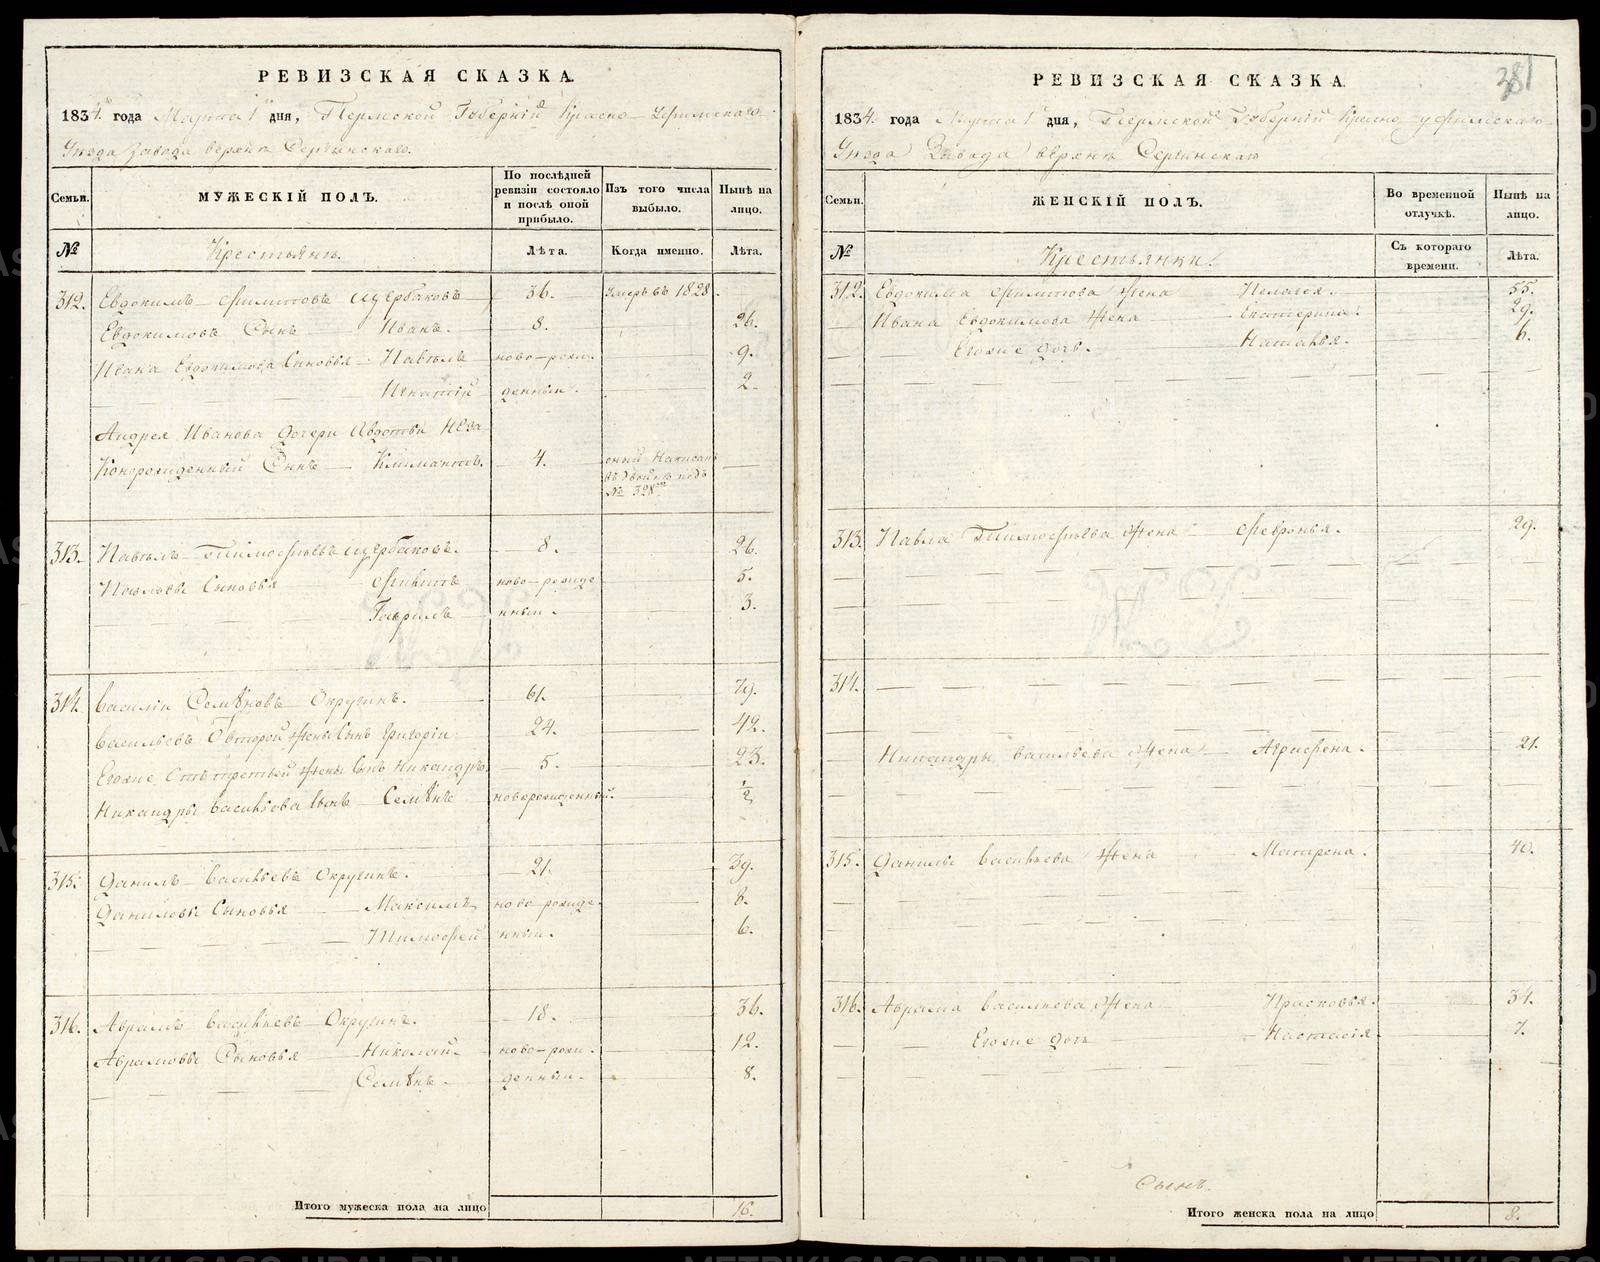 РЕВИЗСКАЯ СКАЗКА.
1834 года Марта 1 дня, Пермской Губернии Красно-Уфимскаго
Уезда Завода верхне Сергинскаго.
Семьи. МУЖЕСКІЙ ПОЛЪ. По послѣдней ревизіи состояло и послѣ оной прибыло. Изъ того числа выбыло. Нынѣ на лицо.
№ Крестьянъ. Лѣта. Когда именно. Лѣта.
312. Евдокимъ Филиповъ Щербаковъ 36. Умеръ въ 1828.
Евдокимовъ Сынъ Иванъ. 8. 26.
Ивана Евдокимова Сыновья Павелъ ново-рож- 9.
Игнатій денныи. 2.
Андрея Иванова дочери Авдотьи неза
конорожденный Сынъ Климантъ. 4. оный Написанъ
въ двойнѣ подъ
№ 328
313. Павелъ Тимофѣевъ Щербаковъ. 8. 26.
Павловы Сыновья Филипъ ново-рожде 5.
Гаврилъ нныи. 3.
314. Василіи Семѣновъ Окружинъ. 61. 79.
Васильевъ От второй жены Сынъ Григоріи 24. 42.
Егоже Отъ третьей жены Сынъ Никандръ 5. 23.
Никандры Васильева Сынъ Семѣнъ новорожденный. ½
315. Данилъ Васильевъ Окружинъ. 21. 39.
Даниловы Сыновья Максимъ ново-рожде- 8.
Тимофей нныи. 6.
316. Аврамъ Васильевъ Окружинъ. 18. 36.
Аврамовы Сыновья Николай ново-рож- 12.
Семѣнъ. денныи. 8.
Итого мужеска пола на лицо 16.
381
РЕВИЗСКАЯ СКАЗКА.
1834. года Марта 1 дня, Пермской Губерніи Красно уфимскаго
Уезда Завода верхне Сергинскаго
Семьи. ЖЕНСКІЙ ПОЛЪ. Во временной отлучкѣ. Нынѣ на лицо.
№ Крестьянки. Съ котораго времени. Лѣта.
312. Евдокима Филипова Жена Пелагея. 55.
Ивана Евдокимова Жена Екатерина. 29.
Егоже дочь. Наталья. 6.
313. Павла Тимофѣева Жена Февронья. 29.
314.
Никандры Васильева Жена Агрифена. 21.
315. Данилы Васильева Жена Матрена. 40.
316. Аврама Васильева Жена Прасковья. 34.
Егоже дочь Настасія. 7.
Сынъ.
Итого женска пола на лицо 8.